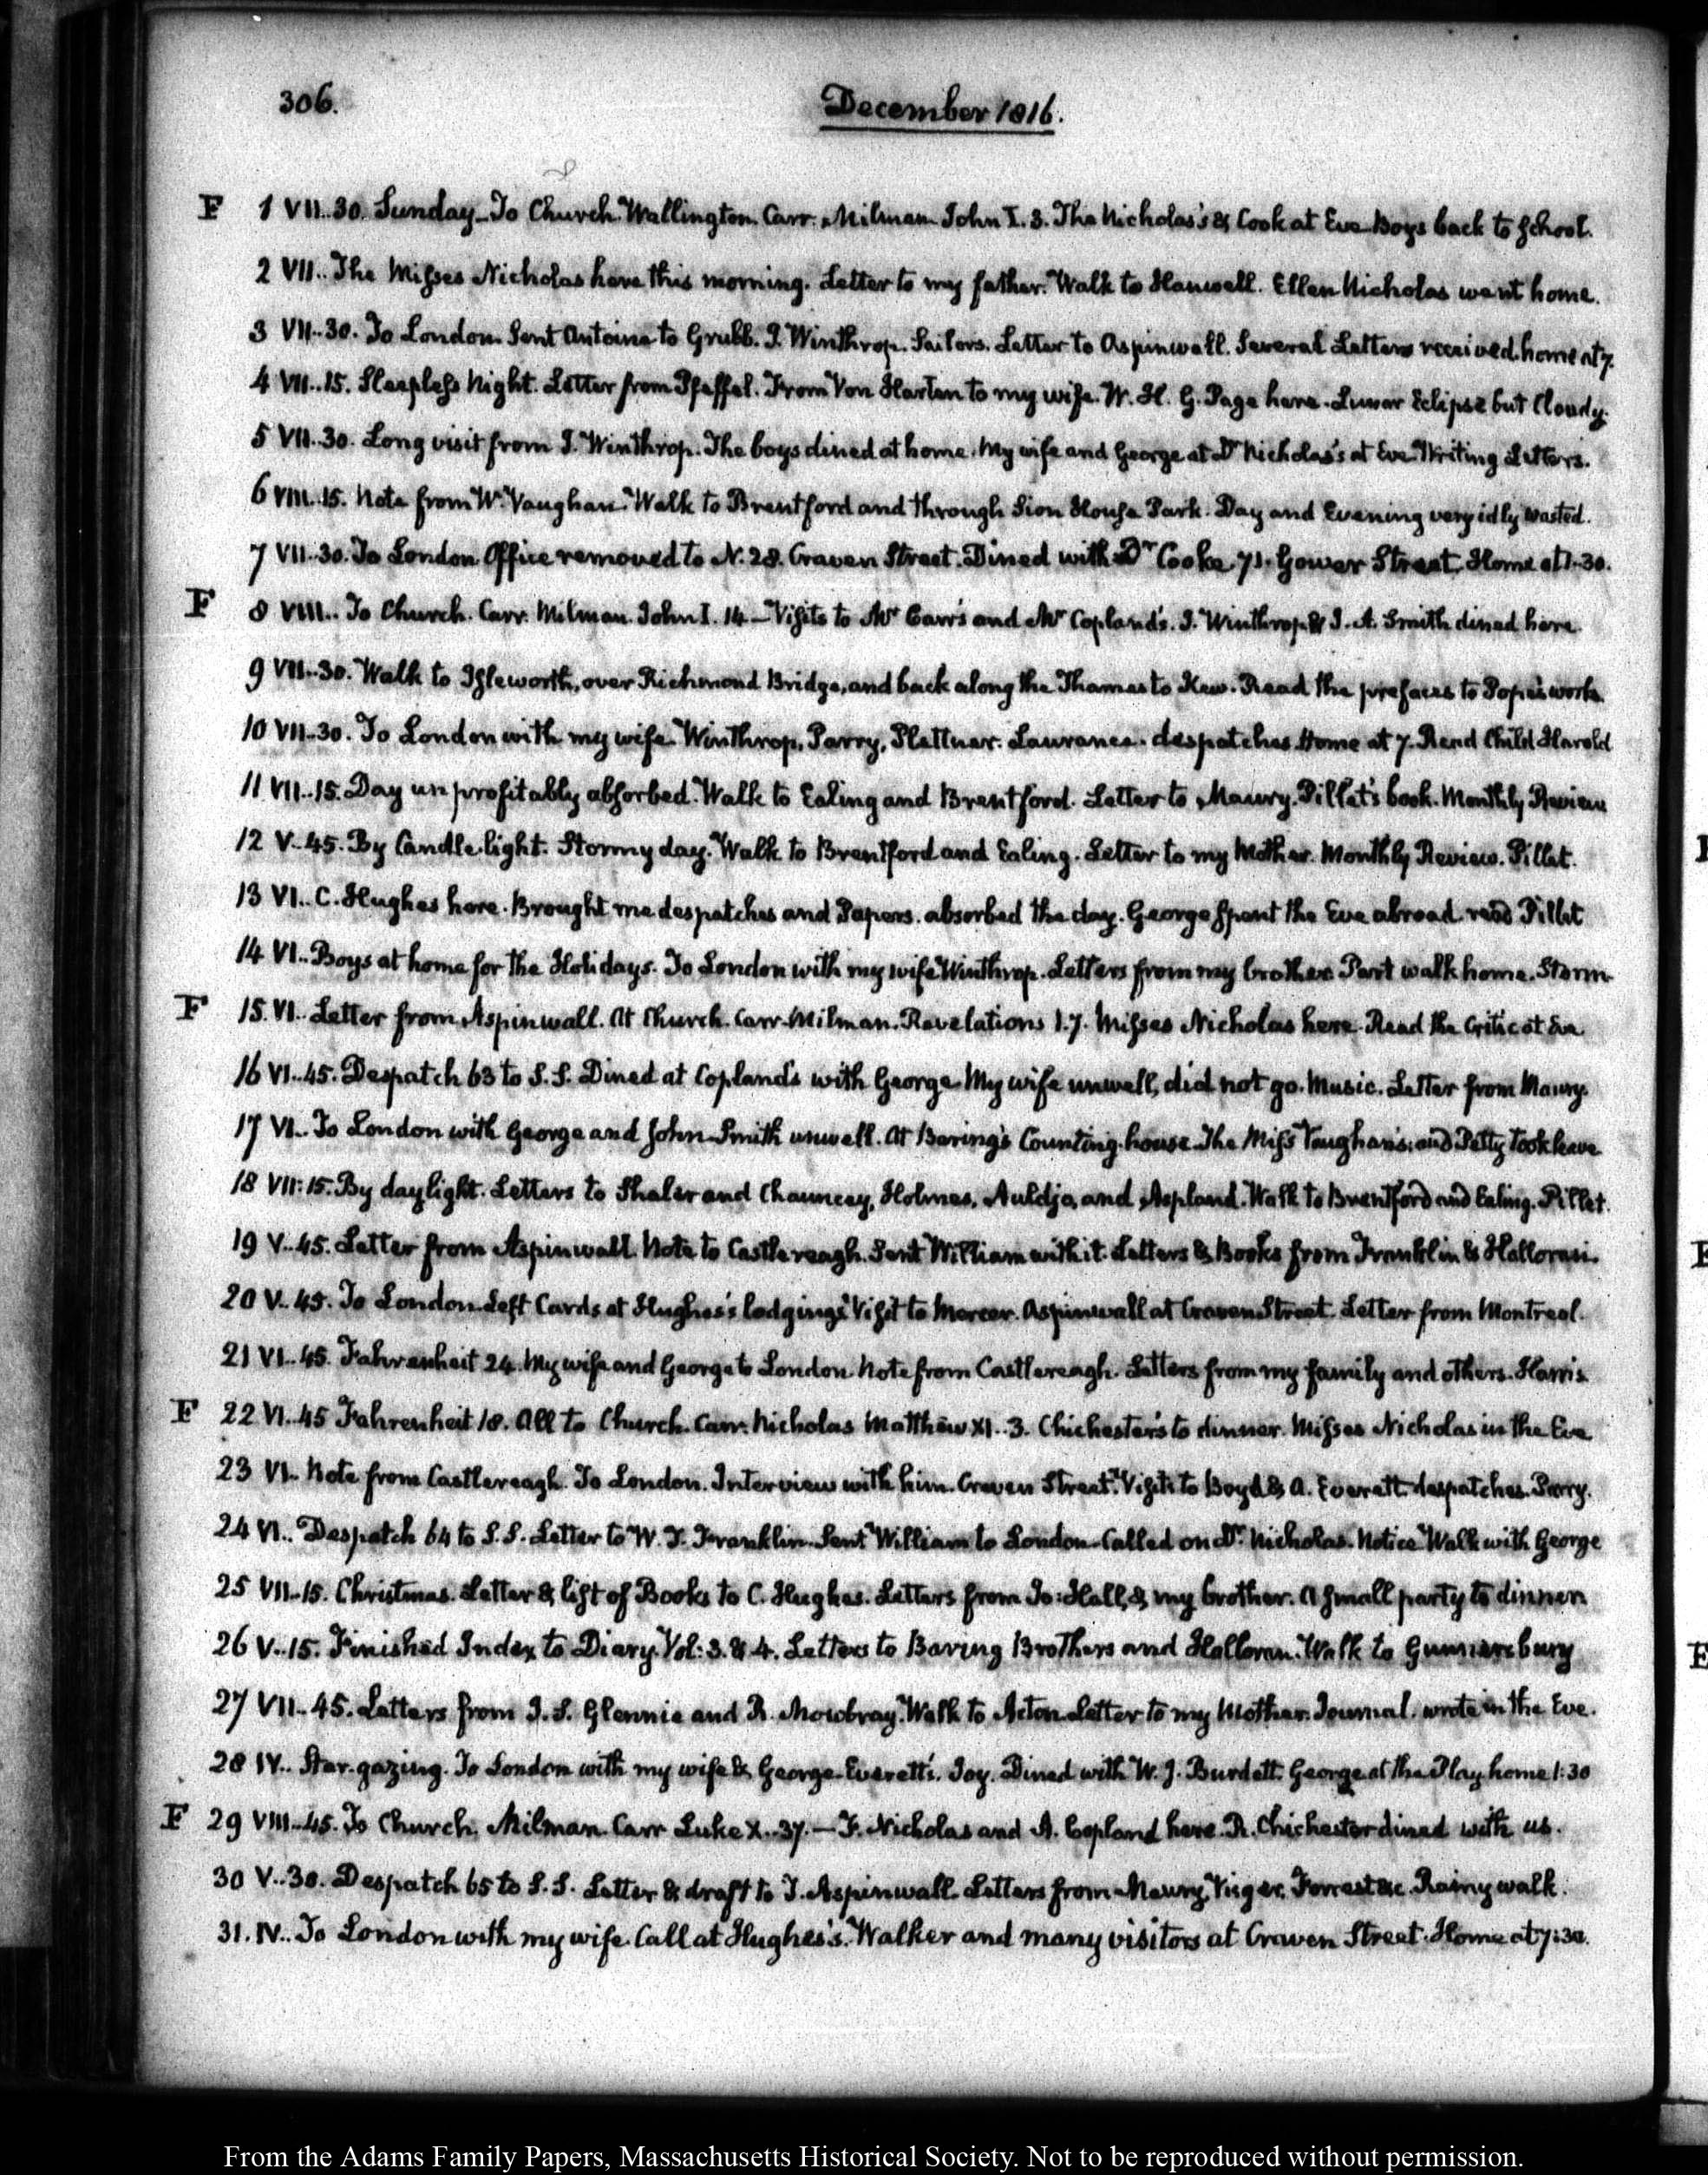 306.
December 1816.
F 1 VII..30. Sunday_To Church. Wallington. Carr. Milman John I. 3. The Nicholas's & Cook at Eve. Boys back to school.
2 VII.. The Misses Nicholas here this morning. Letter to my father. Walk to Hanwell. Ellen Nicholas went home.
3 VII..30. To London. Sent Antoine to Grubb. J. Winthrop. Sailors. Letter to Aspinwall. Several Letters received. home at 7.
4 VII..15. Sleepless Night. Letter from Pfeffel. From Von Harten to my wife. W. H. G. Page here. Lunar Eclipse but Cloudy.
5 VII..30. Long visit from J. Winthrop. The boys dined at home. My wife and George at Dr Nicholas's at Eve. Writing Letters.
6 VIII..15. Note from W. Vaughan. Walk to Brentford and through Sion House Park. Day and Evening very idly wasted.
7 VII..30. To London. Office removed to N. 28. Craven Street. Dined with Dr Cooke. 71. Gower Street. Home at 1..30.
F 8 VIII.. To Church. Carr. Milman. John I. 14 — Visits to Mr Carr's and Mr Copland's. J. Winthrop & J. A. Smith dined here.
9 VII..30. Walk to Isleworth, over Richmond Bridge, and back along the Thames to Kew. Read the prefaces to Pope's works.
10 VII..30. To London with my wife. Winthrop, Parry, Plattner. Laurance. despatches. Home at 7. Read Child Harold
11 VII..15. Day unprofitably absorbed. Walk to Ealing and Brentford. Letter to Maury. Pillet's book. Monthly Review
12 V..45. By Candle light. Stormy day. Walk to Brentford and Ealing. Letter to my Mother. Monthly Review. Pillet.
13 VI.. C. Hughes here. Brought me despatches and Papers. absorbed the day. George spent the Eve abroad. read Pillet
14 VI.. Boys at home for the Holidays. To London with my wife. Winthrop. Letters from my brother. Part walk home. Storm
F 15. VI.. Letter from Aspinwall. At Church. Carr. Milman. Revelations 1. 7. Misses Nicholas here. Read the Critic at Eve
16 VI..45. Despatch 63 to S. S. Dined at Copland's with George. My wife unwell, did not go. Music. Letter from Maury.
17 VI.. To London with George and John. Smith unwell. At Baring's Counting-house. The Miss Vaughan's. and Petty took leave
18 VII:15. By daylight. Letters to Shaler and Chauncey, Holmes, Auldjo, and Aspland. Walk to Brentford and Ealing. Pillet.
19 V..45. Letter from Aspinwall. Note to Castlereagh. Sent William with it. Letters & Books from Franklin & Halloran.
20 V..45. To London. Left Cards at Hughes's lodgings. Visit to Mercer. Aspinwall at Craven Street. Letter from Montreal.
21 VI..45. Fahrenheit 24. My wife and George to London. Note from Castlereagh. Letters from my family and others. Harris
F 22 VI..45 Fahrenheit 18. All to Church. Carr. Nicholas Matthew XI..3. Chichester's to dinner. Misses Nicholas in the Eve
23 VI.. Note from Castlereagh. To London. Interview with him. Craven Street. Visits to Boyd & A. Everett. despatches. Parry.
24 VI.. Despatch 64 to S. S. Letter to W. T. Franklin. Sent William to London. Called on Dr. Nicholas. Notice. Walk with George
25 VII..15. Christmas. Letter & list of Books to C. Hughes. Letters from Jo: Hall, & my brother. A small party to dinner.
26 V..15. Finished Index to Diary. Vol: 3. & 4. Letters to Baring Brothers and Halloran. Walk to Gunnersbury
27 VII..45. Letters from J. S. Glennie and R. Mowbray. Walk to Acton. Letter to my Mother. Journal. wrote in the Eve.
28 IV.. Star-gazing. To London with my wife & George. Everett's. Joy. Dined with W. J. Burdett. George at the Play. home 1:30
F 29 VIII..45. To Church. Milman. Carr Luke X..37. — F. Nicholas and A. Copland here. R. Chichester dined with us.
30 V..30. Despatch 65 to S. S. Letter & draft to T. Aspinwall. Letters from Maury, Forrest &c. Rainy walk.
31. IV.. To London with my wife. Call at Hughes's. Walker and many visitors at Craven Street. Home at 7:30.
From the Adams Family Papers, Massachusetts Historical Society. Not to be reproduced without permission.